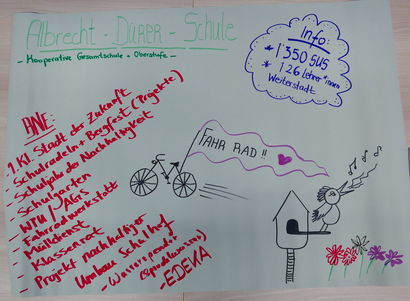 Albrecht - Dürer - Schule
- Kooperative Gesamtschule + Oberstufe -
Info:
* 1350 SUS
* 126 Lehrer*innen
Weiterstadt
BNE:
- 1 Kl. Stadt der Zukunft
- Schulradeln + Bergfest (Projekte)
- Schuljahr der Nachhaltigkeit
- Schulgarten
- WPU / AGs
- Fahrradwerkstatt
- Mülldienst
- Klassenrat
- Projekt nachhaltiger
Umbau Schulhof
- Wasserspender
(Sprudelwasser)
- EDEKA
FAHR RAD!!